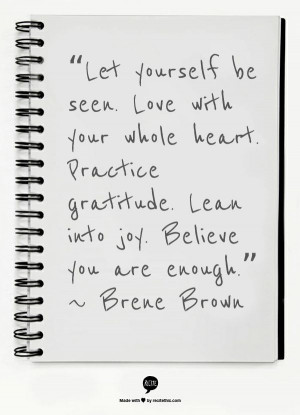 “Let yourself be
seen. Love with
your whole heart.
Practice
gratitude. Lean
into joy. Believe
you are enough.”
~ Brene Brown
Made with ♥ by recitethis.com